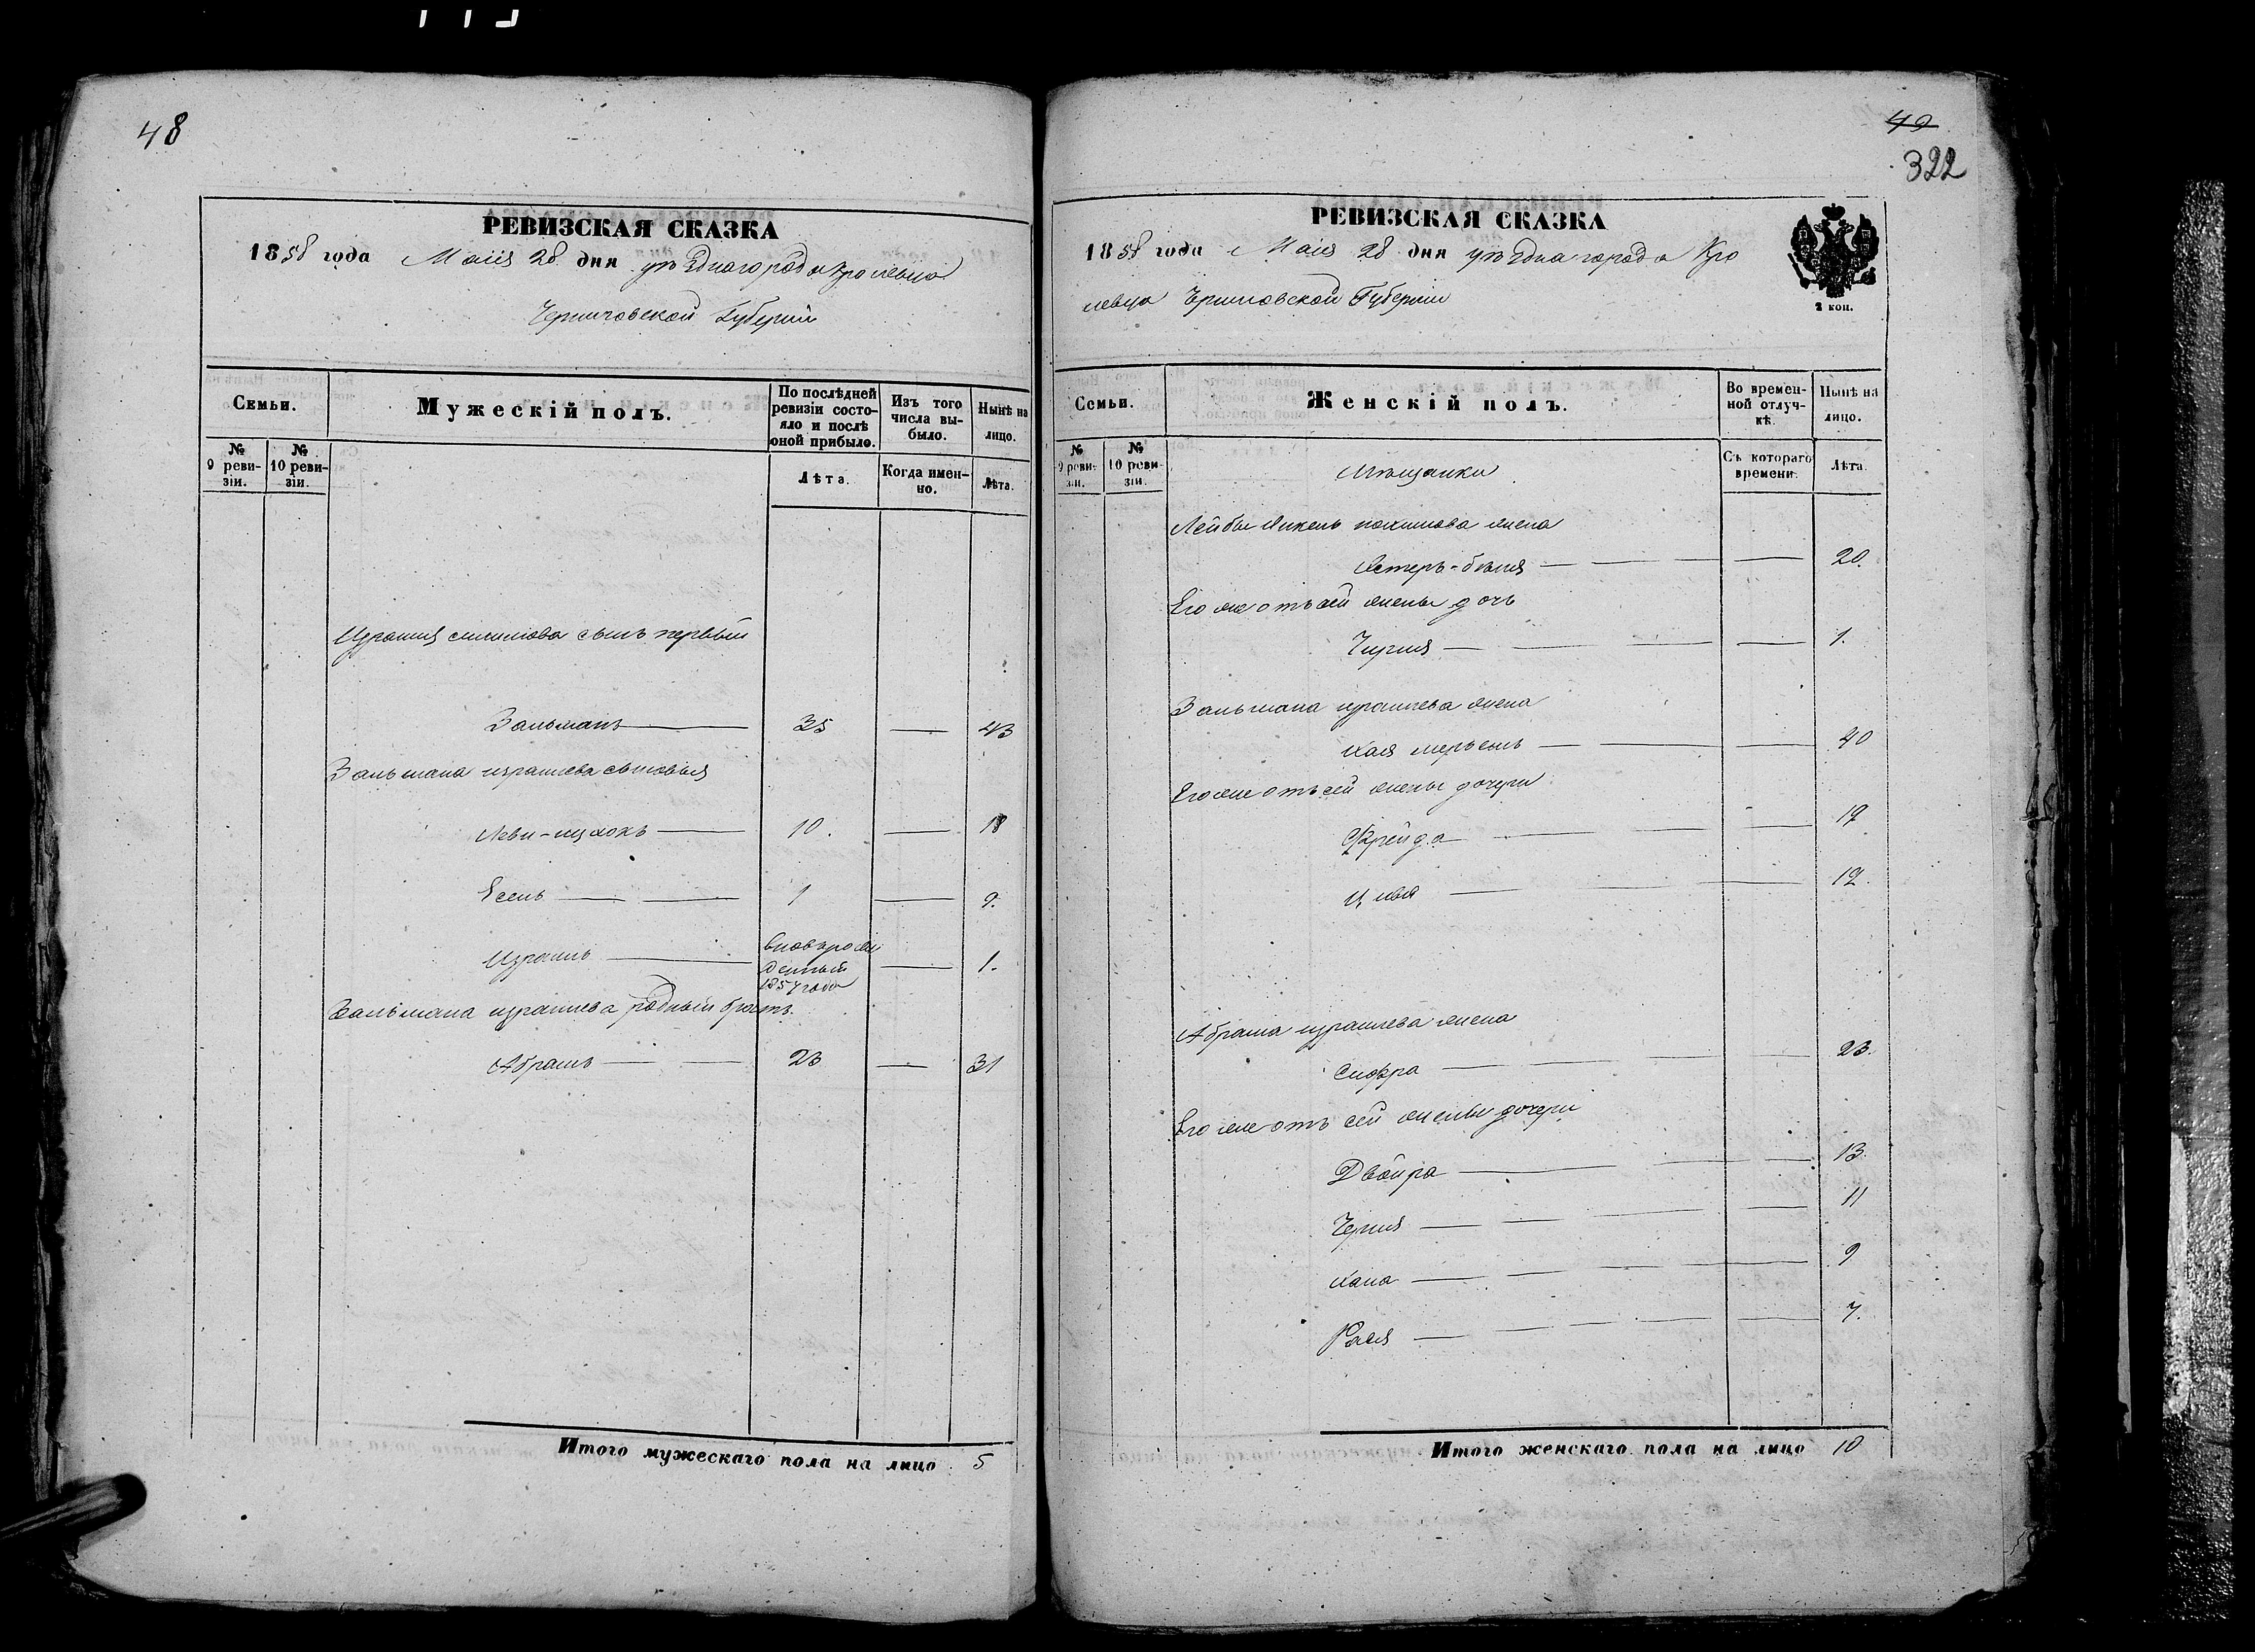 48
РЕВИЗСКАЯ СКАЗКА
1858 года Маія 28 дня уѣзднаго города Кролевца
Черниговской Губерніи
Семьи.
Мужескій полъ.
По послѣдней ревизіи состояло и послѣ оной прибыло.
Изъ того числа выбыло.
Нынѣ на лицо.
№ 9 ревизіи.
№ 10 ревизіи.
Лѣта.
Когда именно.
Лѣта.
Израиля сынъ первый
Зальманъ 35 — 43
Зальмана израилева сыновья
Леви-ицхокъ 10. — 18
Есель 1 — 9.
Израиль вновърожденный 1857 года — 1.
Зальмана израилева родный братъ
Абрамъ 23 — 31
Итого мужескаго пола на лицо 5
49
322
РЕВИЗСКАЯ СКАЗКА
1858 года Маія 28 дня уѣзднаго города Кро
левца Черниговской Губерніи
2 коп.
Семьи.
Женскій полъ.
Во временной отлучкѣ.
Нынѣ на лицо.
№ 9 ревизіи.
№ 10 ревизіи.
Съ котораго времени.
Лѣта.
Мѣщанки
Лейбы жена
Эстеръ-бейля — 20.
Его же отъ сей жены дочь
Чирня — 1.
Зальмана израилева жена
Хая — 40
Его же отъ сей жены дочери
Фрейда — 19
Цивя — 12.
Абрама израилева жена
Сифра — 23.
Его же отъ сей жены дочери
Двойра — 13.
Черня — 11
Хана — 9
Рася — 7.
Итого женскаго пола на лицо 10